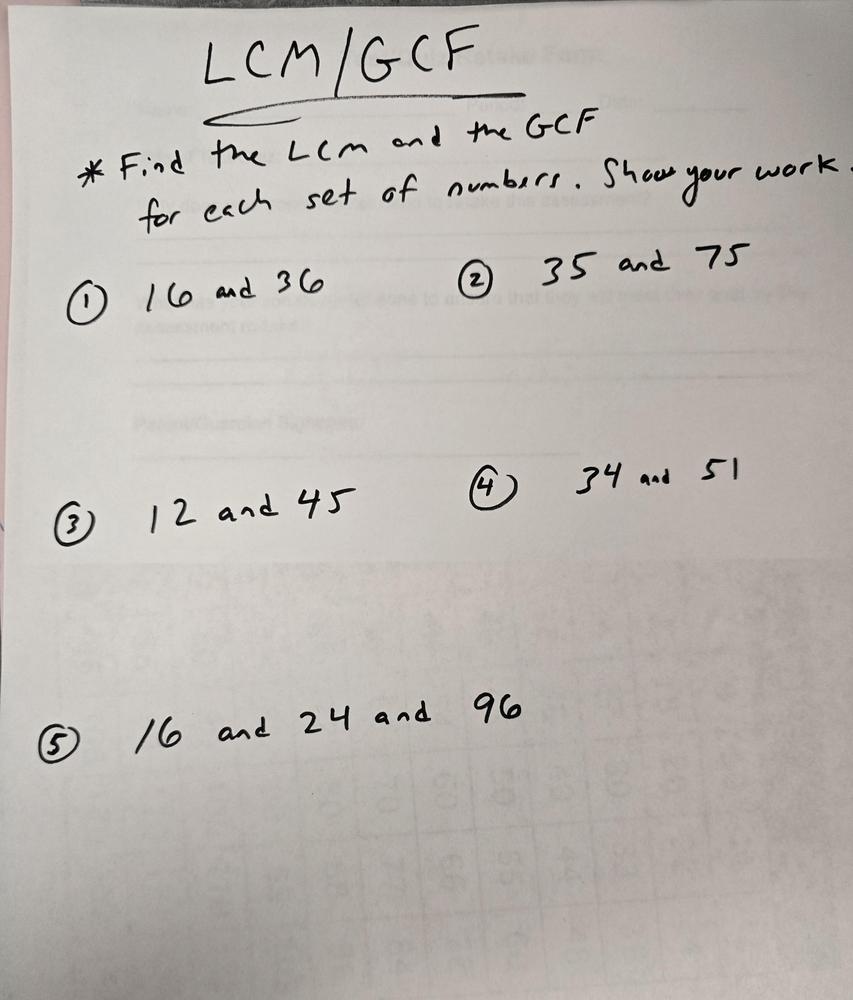 LCM/GCF
* Find the LCM and the GCF
for each set of numbers. Show your work.
① 16 and 36
② 35 and 75
③ 12 and 45
④ 34 and 51
⑤ 16 and 24 and 96